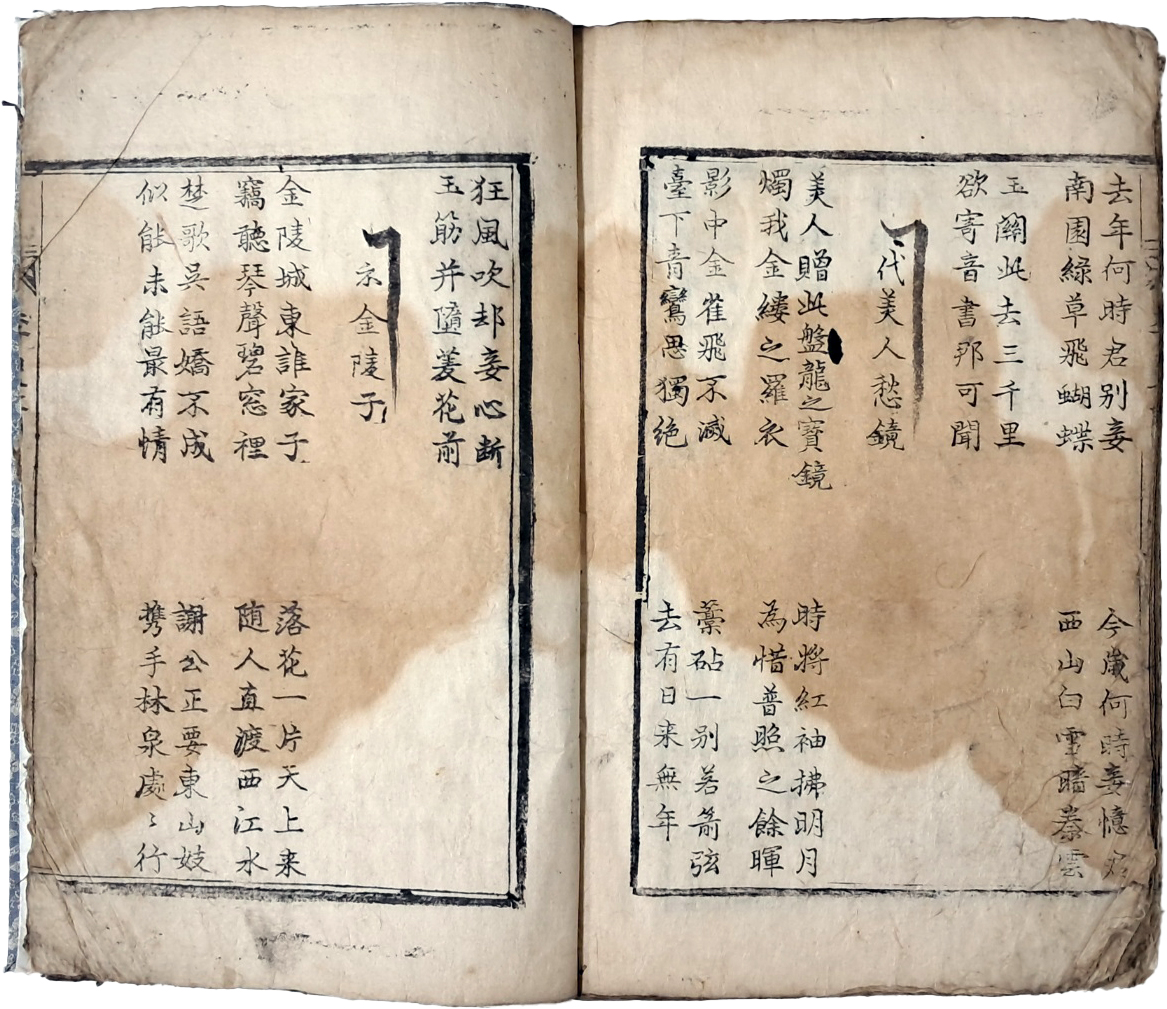 去年何時君别妾
南園綠草飛蝴蝶
今歲何時妾憶君
西山白雪暗秦雲
玉關此去三千里
欲寄音書那可聞
代美人愁鏡
美人贈此盤龍之寶鏡
燭我金縷之羅衣
時將紅袖拂明月
為惜普照之餘暉
影中金雀飛不滅
臺下青鸞思獨絶
藁砧一别若箭弦
去有日来無年
狂風吹却妾心断
玉筯并隨菱花前
示金陵子
金陵城東誰家子
竊聽琴聲碧窓裡
落花一片天上来
随人直渡西江水
楚歌吳語嬌不成
似能未能最有情
謝公正要東山妓
携手林泉處〻行